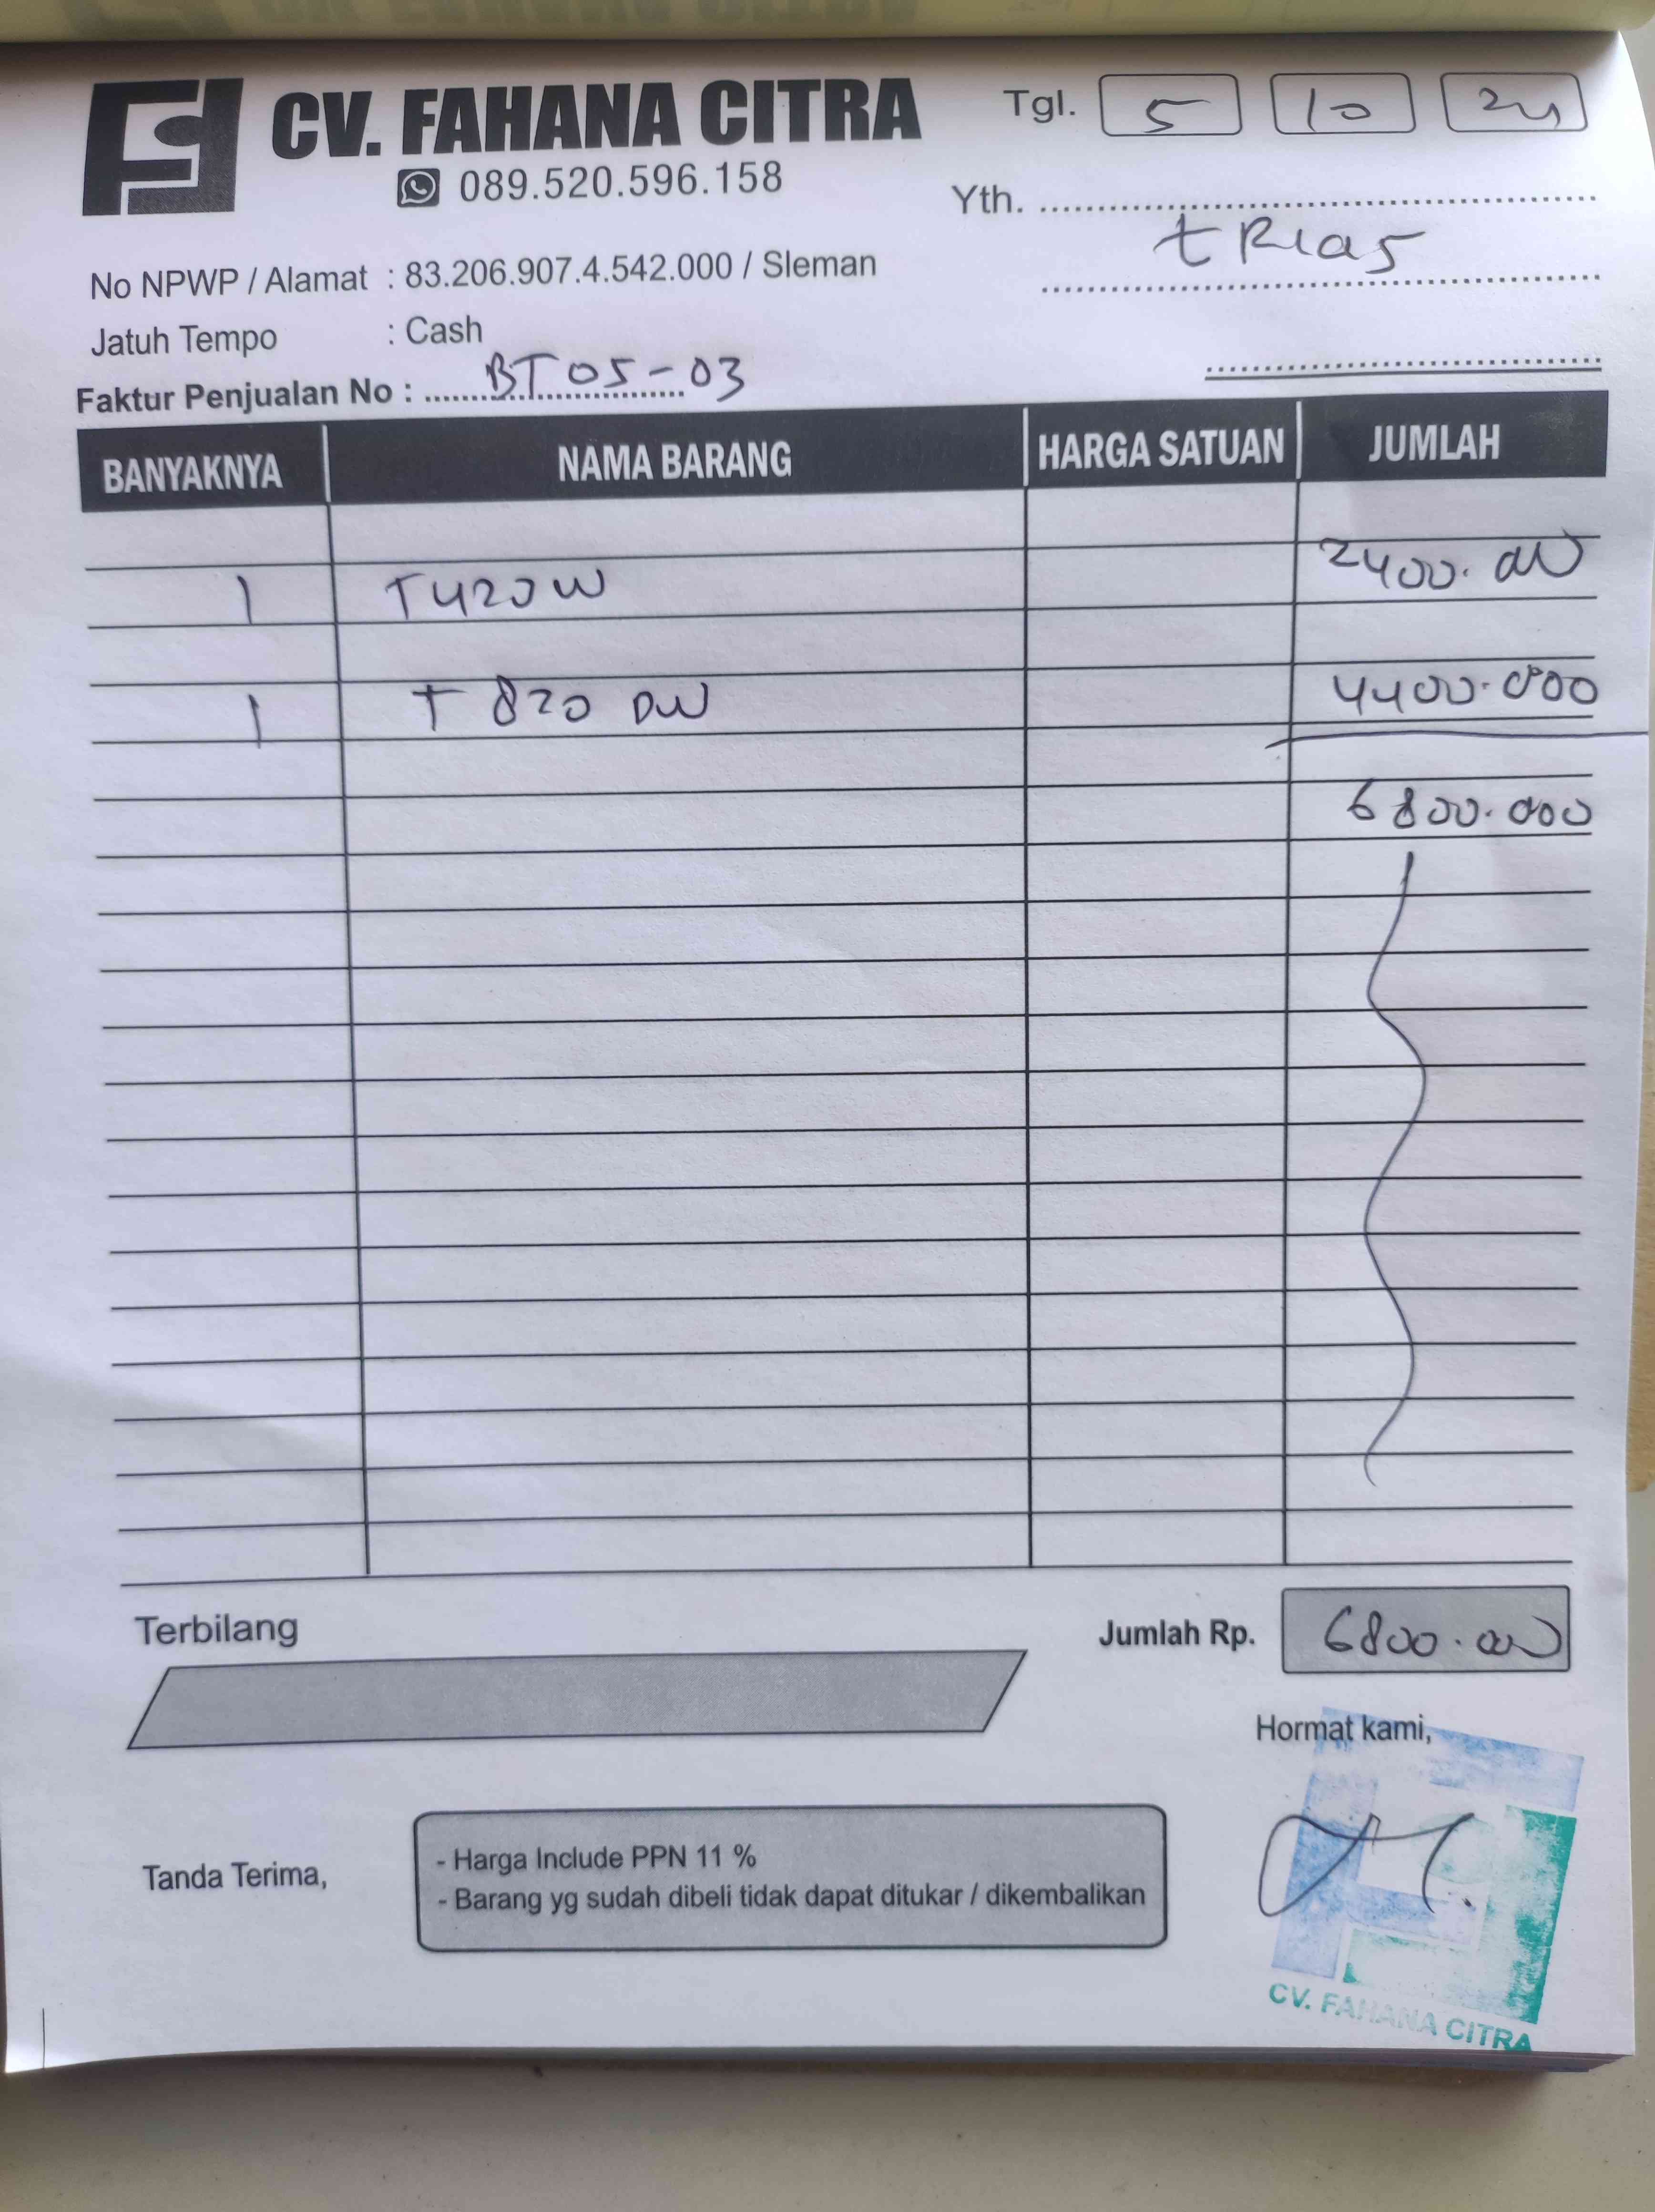 CV. FAHANA CITRA
089.520.596.158
Tgl. 5 10 24
Yth. tRias
No NPWP / Alamat : 83.206.907.4.542.000 / Sleman
Jatuh Tempo : Cash
Faktur Penjualan No : BT05-03
BANYAKNYA NAMA BARANG HARGA SATUAN JUMLAH
1 T420W 2400.000
1 T 820 DW 4400.000
6800.000
Terbilang
Jumlah Rp. 6800.000
Hormat kami,
Tanda Terima,
- Harga Include PPN 11 %
- Barang yg sudah dibeli tidak dapat ditukar / dikembalikan
CV. FAHANA CITRA